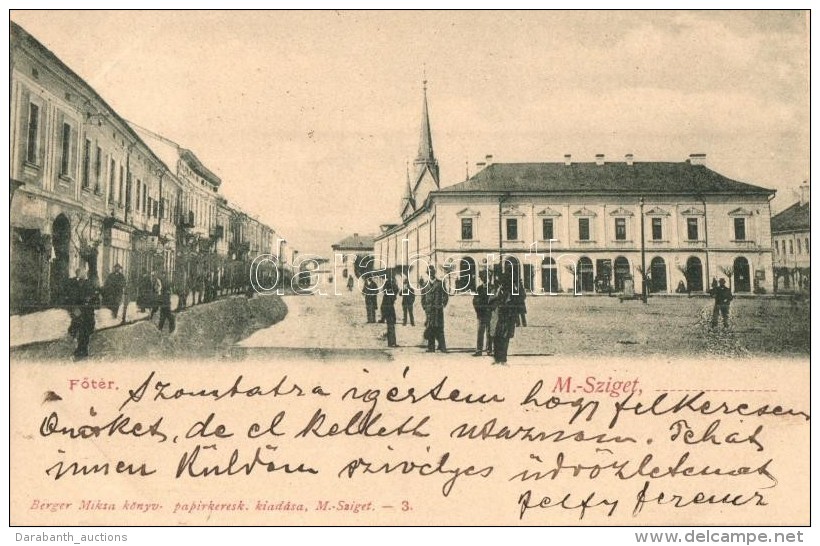 Darabanth
Főtér.
M.-Sziget,
Szombatra igértem hogy felkeresem
Önöket, de el kellett utaznom. Tehát
innen küldöm szivélyes üdvözletemet
Ferencz
Berger Miksa könyv- papirkeresk. kiadása, M.-Sziget. — 3.
Darabanth_auctions
http://www.delcampe.net